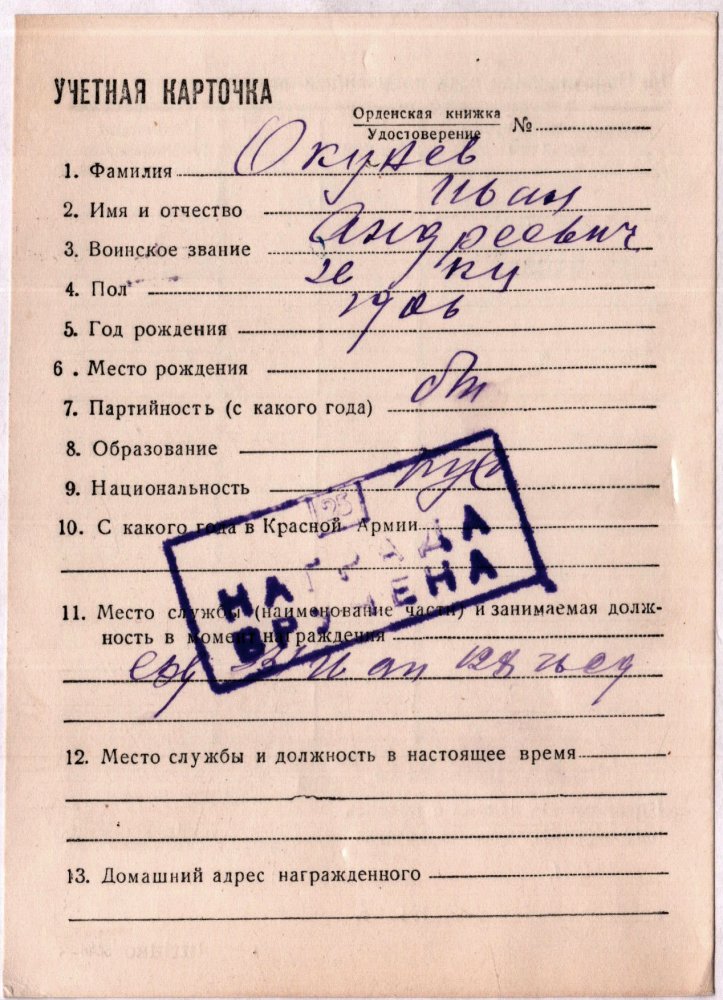 УЧЕТНАЯ КАРТОЧКА
Орденская книжка
Удостоверение №
1. Фамилия Окунев
2. Имя и отчество Иван
Андреевич
3. Воинское звание
4. Пол
5. Год рождения 1906
6. Место рождения
7. Партийность (с какого года) бп
8. Образование
9. Национальность рус
10. С какого года в Красной Армии
25
НАГРАДА
ВРУЧЕНА
11. Место службы (наименование части) и занимаемая долж-
ность в момент награждения
12. Место службы и должность в настоящее время
13. Домашний адрес награжденного